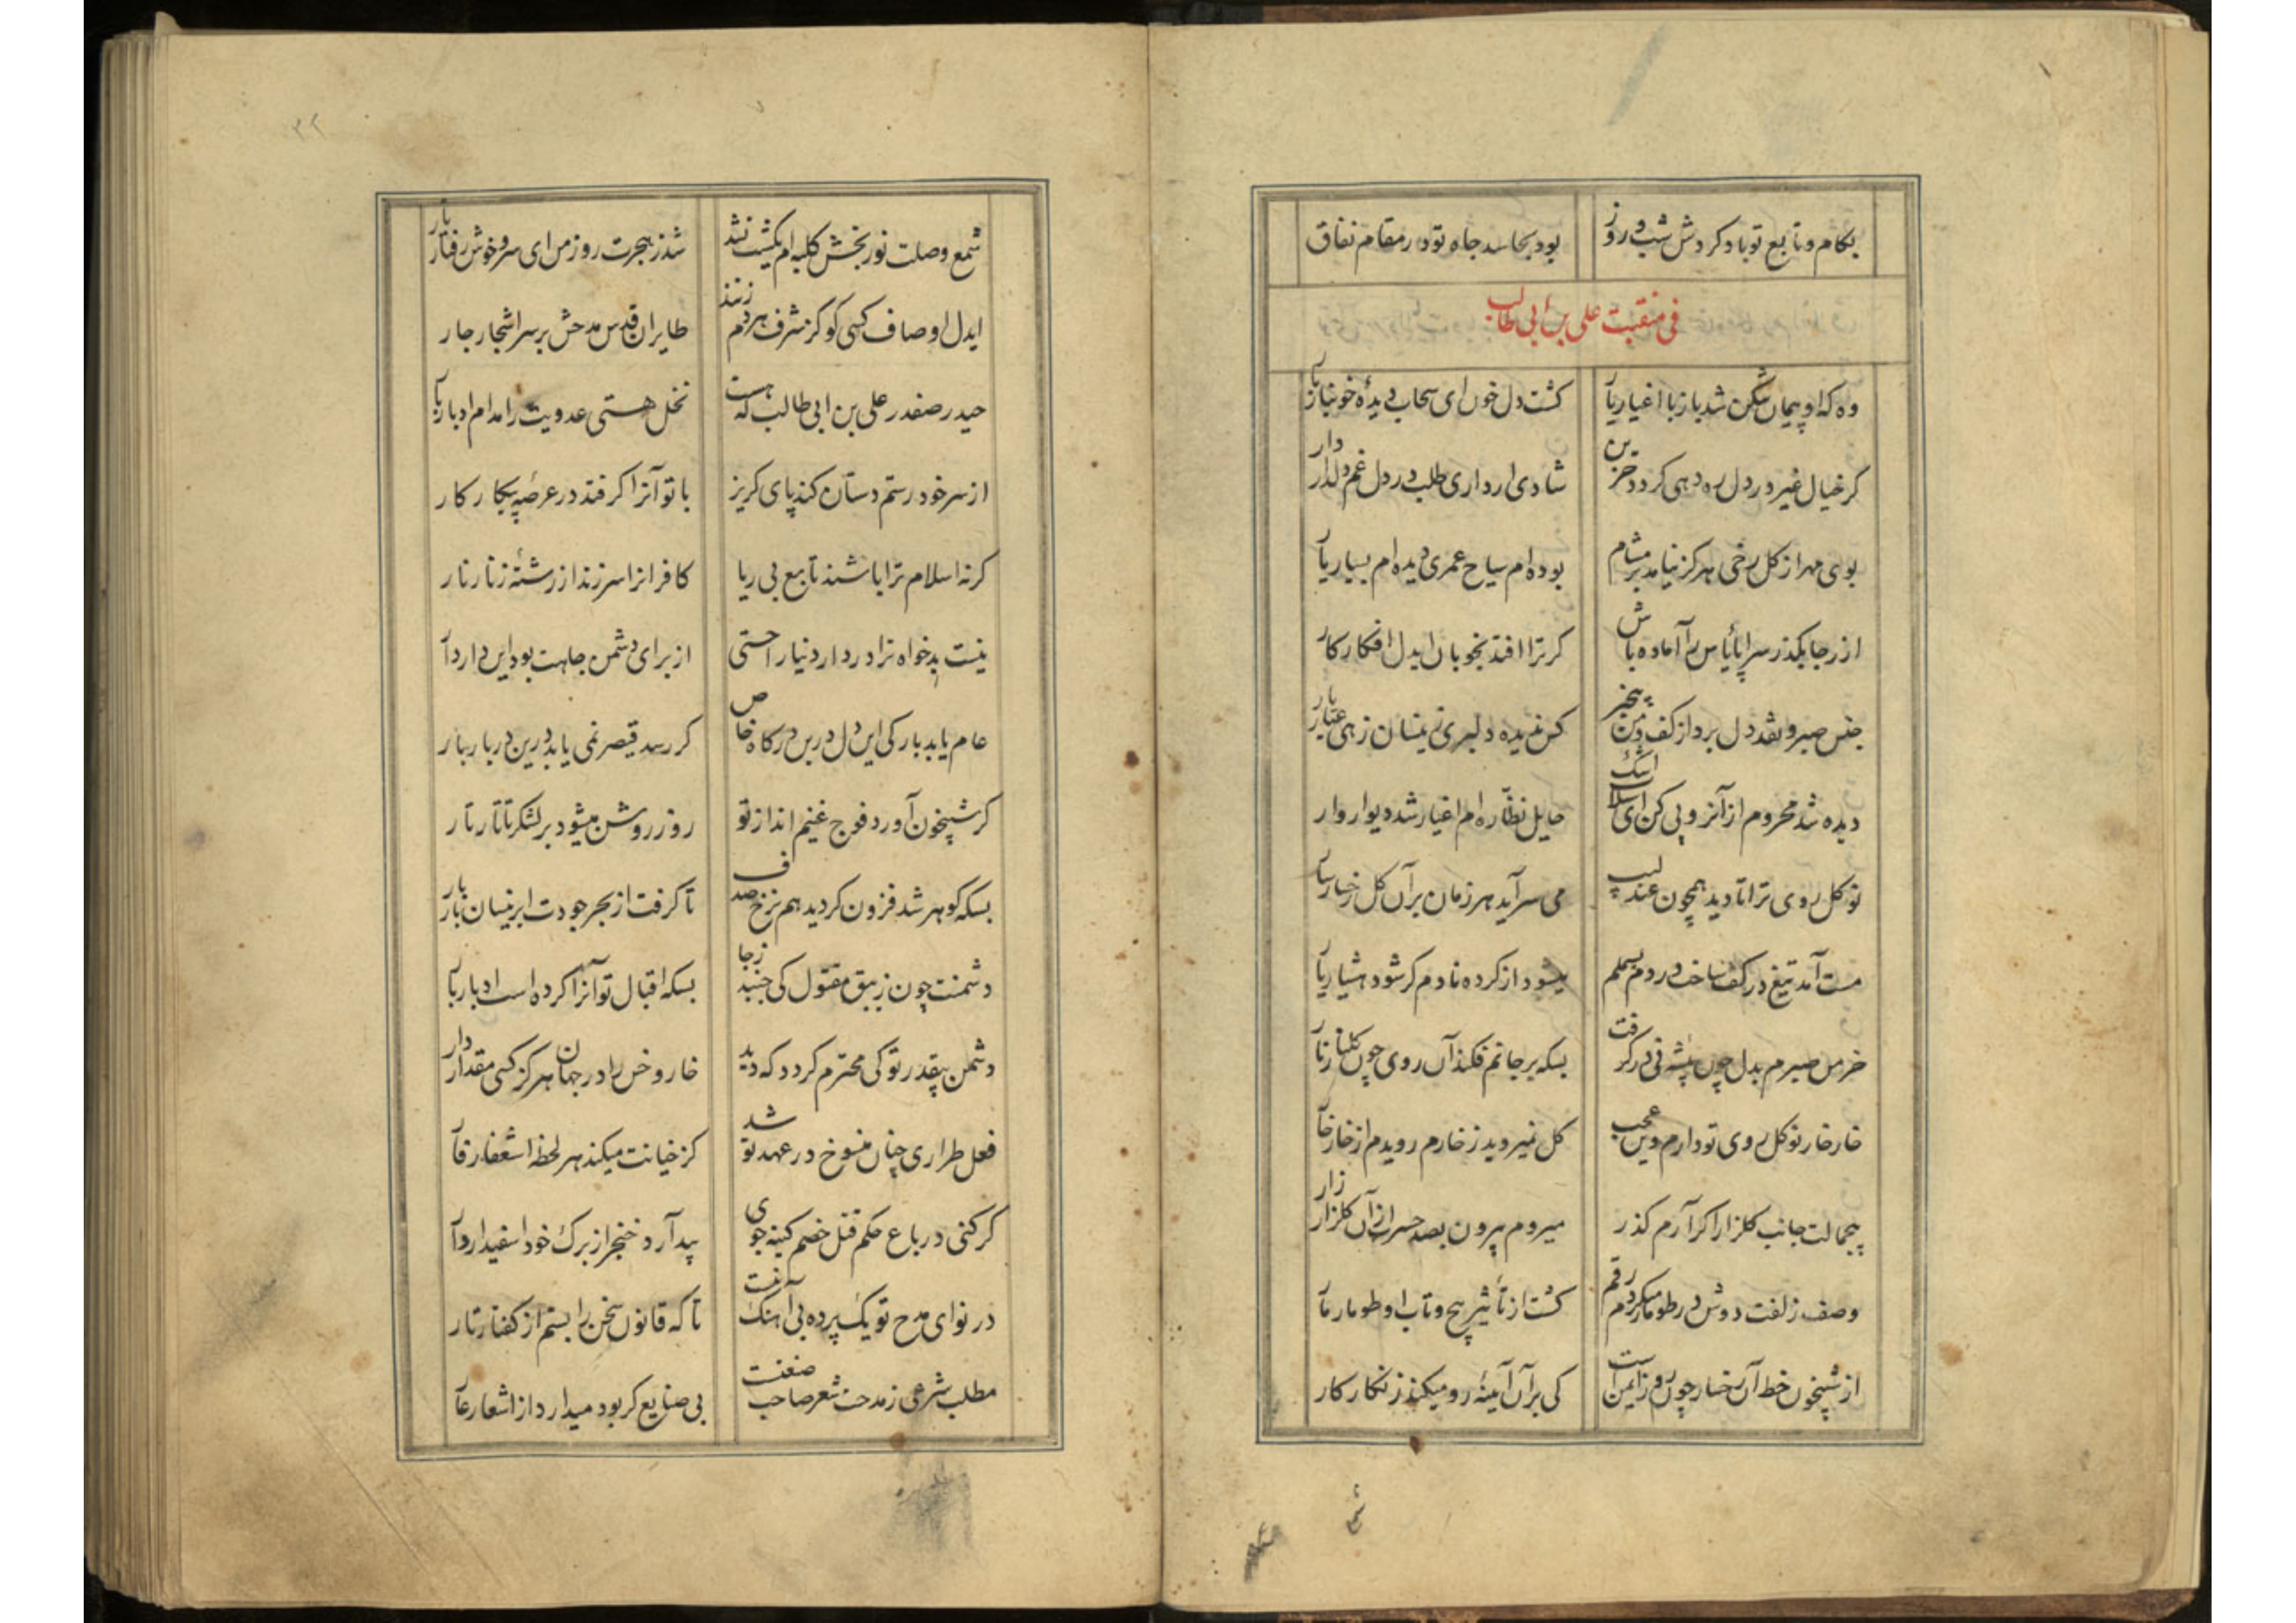 بکام و تابع تو باد کردش شب و روز
بود بحاسد جاه تو در مقام نفاق
فی منقبت علی بن ابی طالب
وه که او پیمان شکن شد باز با اغیار یار
کشت دل خون ای سحاب دیدهٔ خونبار بار
کر خیال غیر در دل ره دهی کردد حزین
شادی ار داری طلب در دل غم دلدار دار
بوی مهر از کل رخی هرکز نیامد بر مشام
بوده ام سیاح عمری دیده ام بسیار یار
از رجا بکذر سراپا یاس را آماده باش
کر ترا افتد بخوبان ایدل افکار کار
جنس صبر و نقد دل برد از کف من بیخبر
کس ندیده دلبری زینسان زهی عیار یار
دیده شد محروم از آنرو پی کن ای سیلاب اشک
حایل نظاره ام اغیار شد دیوار وار
نو کل روی ترا تا دید همچون عندلیب
می سرآید هر زمان بر آن کل رخسار سار
مست آمد تیغ در کف ساخت در دم بسملم
میشود از کرده نادم کر شود هشیار یار
خرمن صبرم بدل چون پیشه نی در کرفت
بسکه بر جانم فکند آن روی چون کلنار نار
خار خار نو کل روی تو دارم وین عجب
کل نمیروید ز خارم رویدم از خار خار
بیجمالت جانب کلزار اکر آرم کذر
میروم بیرون بصد حسرت از آن کلزار زار
وصف زلفت دوش در طومار میکردم رقم
کشت از تأثیر پیچ و تاب او طومار مار
از شبیخون خط آن رخسار چون روز ایمن است
کی بر آن آیینه رو میکند زنکار کار
شمع وصلت نور بخش کلبه ام یکشب نشد
شد ز هجرت روز من ای سرو خوش رفتار تار
ایدل اوصاف کسی کو کز شرف هر دم زنند
طایران قدس مدحش بر سر اشجار جار
حیدر صفدر علی بن ابی طالب که هست
نخل هستی عدویت را مدام ادبار بار
از سر خود رستم دستان کند پای کریز
با تو آنرا کر فتد در عرصه پیکار کار
کر نه اسلام ترا باشند تابع بی ریا
کافرانرا سر زند از رشتهٔ زنار نار
نیست بدخواه ترا در دار دنیا راحتی
از برای دشمن جاهت بود این دار دار
عام یابد بار کی ایدل درین درکاه خاص
کر رسد قیصر نمی یابد درین دربار بار
کر شبیخون آورد فوج غنیم انداز تو
روز روشن میشود بر لشکر تاتار تار
بسکه کوهر شد فزون کردید هم نرخ صدف
تا کرفت از بحر جودت ابر نیسان بار بار
دشمنت چون زیبق مقتول کی جنبد ز جا
بسکه اقبال تو آنرا کرده است ادبار بار
دشمن بیقدر تو کی محترم کردد که دید
خار و خس را در جهان هرکز کسی مقدار دار
فعل طراری چنان منسوخ در عهد تو شد
کز خیانت میکند هر لحظه استغفار فار
کر کنی در باغ حکم قتل خصم کینه جوی
بید آرد خنجر از برک خود اسفیدار دار
در نوای مدح تو یک پرده بی آهنک نیست
تا که قانون سخن را بستم از کفتار تار
مطلب شرعی ز مدحت شعر صاحب صنعت
بی صنایع کر بود میدارد از اشعار عار